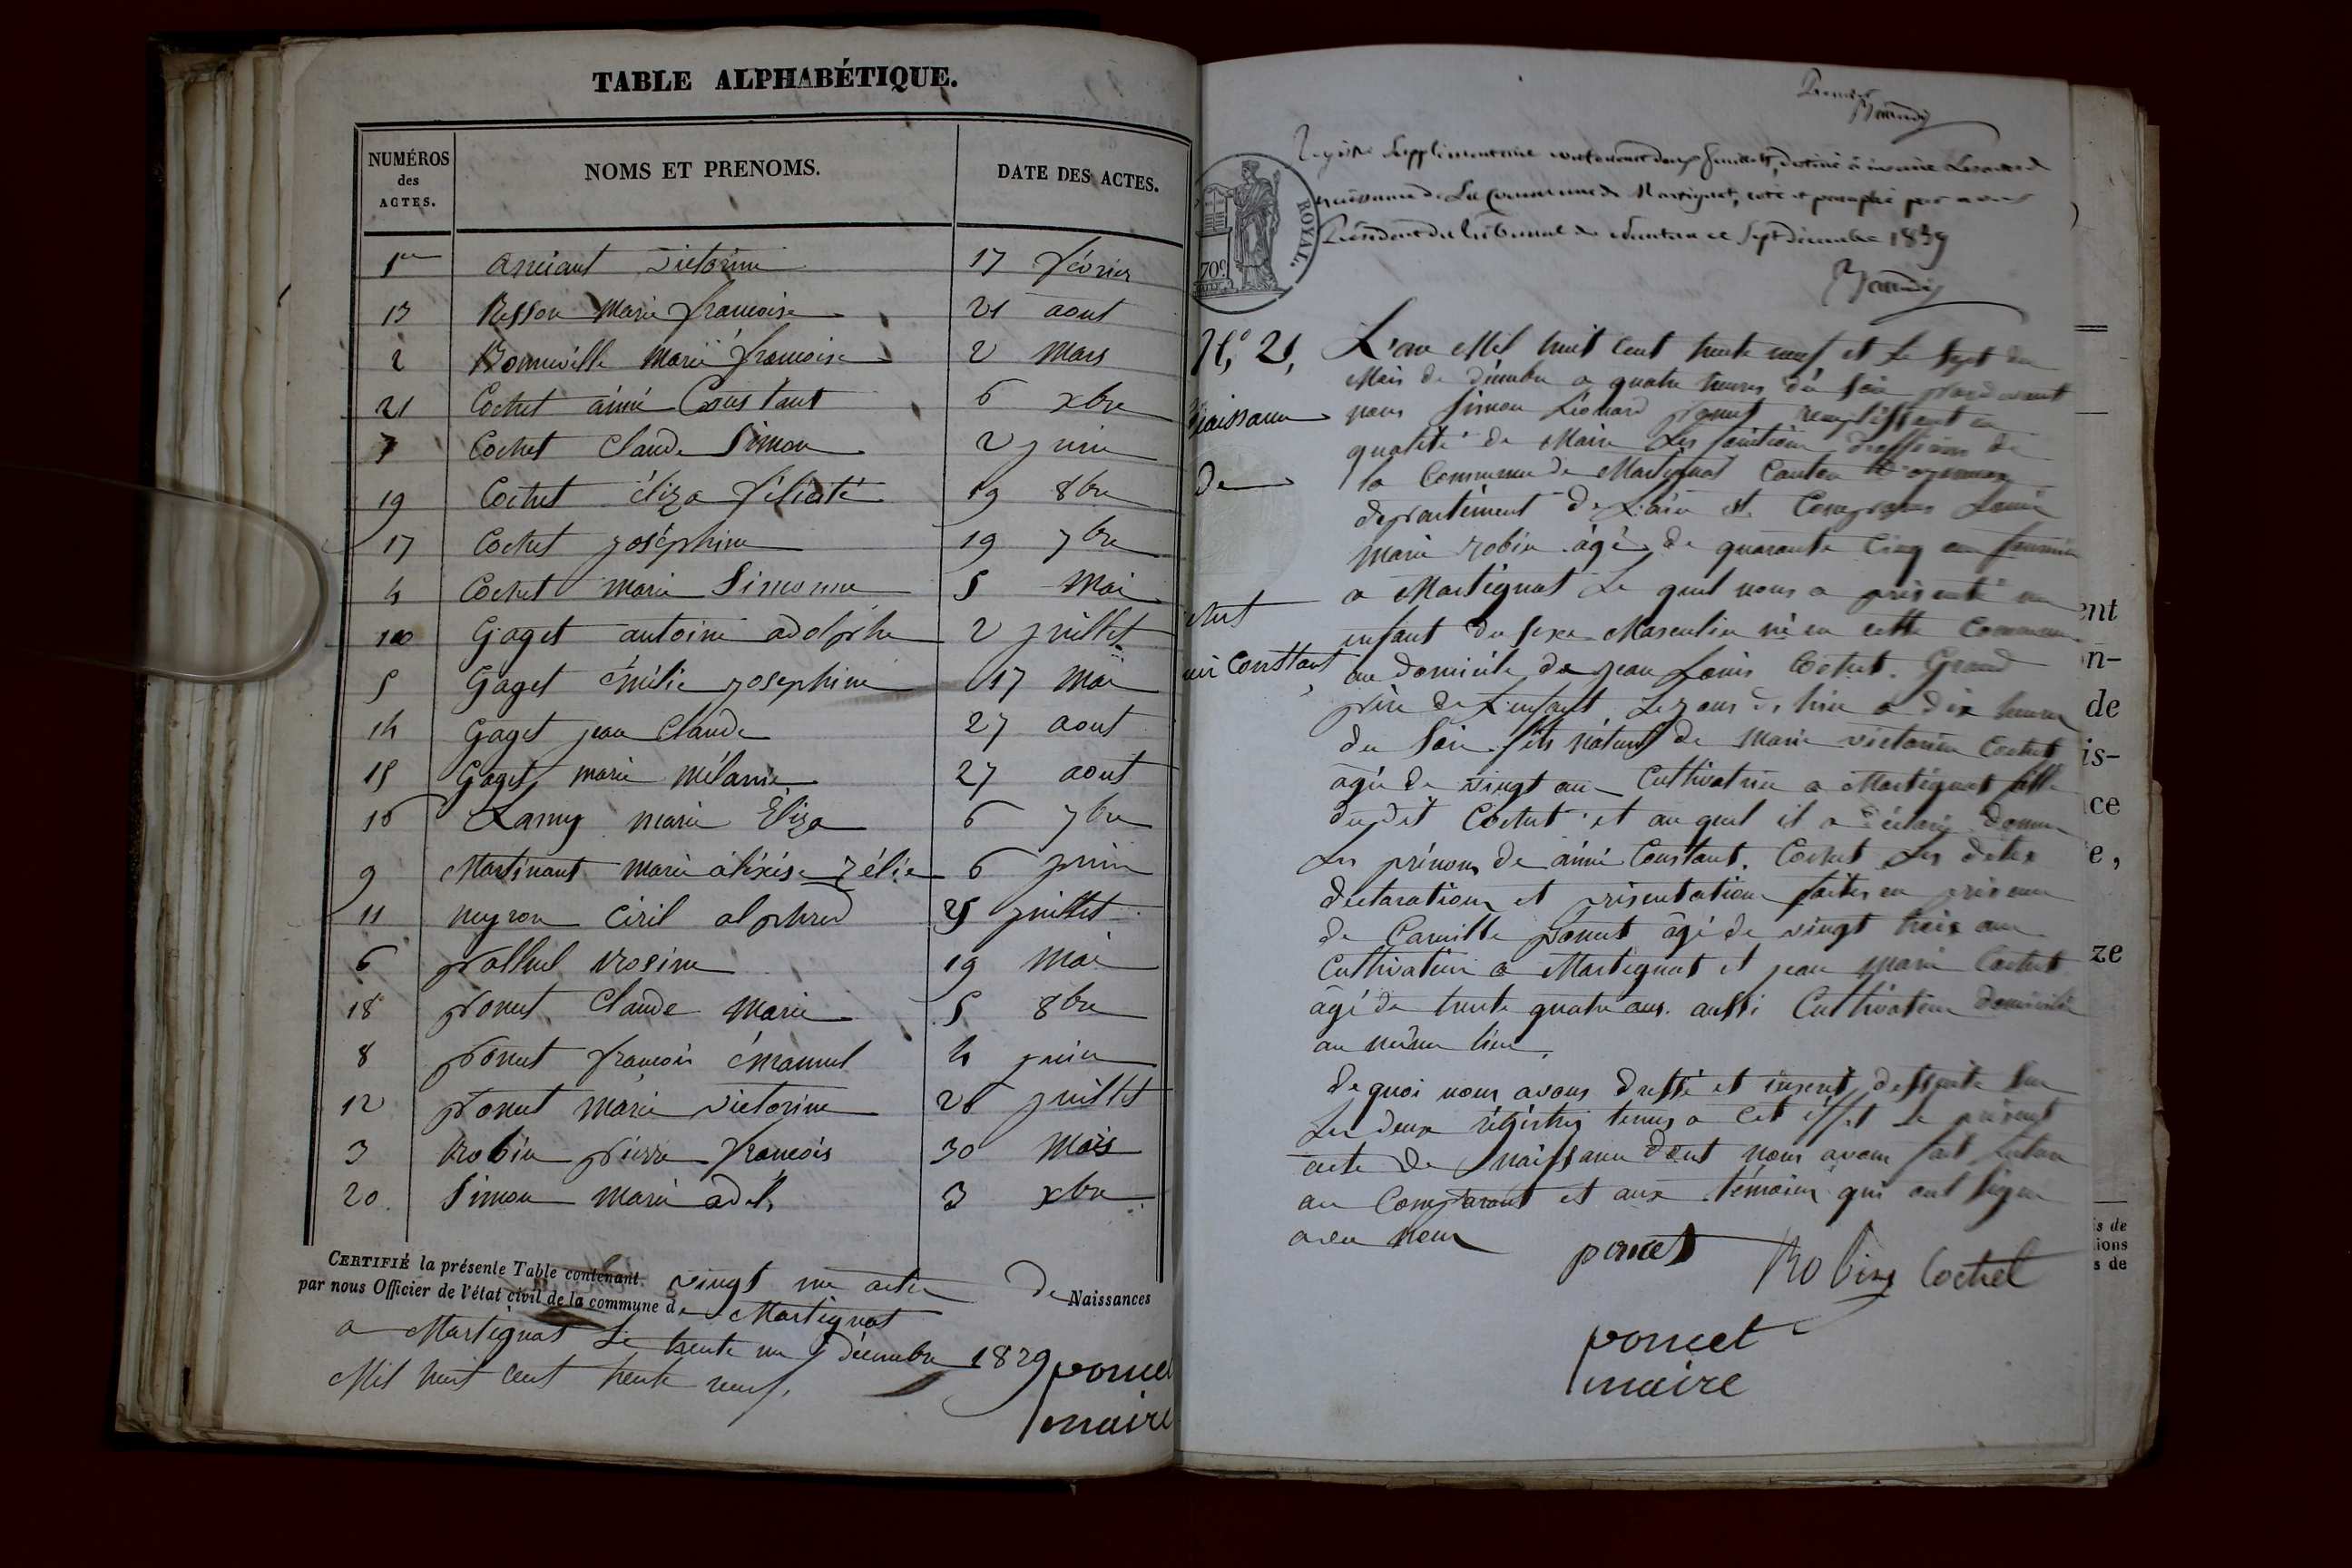 TABLE ALPHABÉTIQUE.
NUMÉROS des ACTES.
NOMS ET PRENOMS.
DATE DES ACTES.
1er anciant victorine 17 février
13 Besson Marie françoise 21 aout
2 Bonneville Marie françoise 2 Mars
21 Cochet aimé Constant 6 xbre
7 Cochet Claude Simon 2 juin
19 Cochet éliza félicité 19 8bre
17 Cochet joséphine 19 7bre
4 Cochet marie Simonne 5 Mai
10 Gaget antoine adolphe 2 juillet
5 Gaget émélie josephine 17 Mai
14 Gaget jean Claude 27 aout
15 Gaget marie mélanie 27 aout
16 Lamy marie Eliza 6 7bre
9 Martinant marie aléxise zélie 6 juin
11 neyron Ciril alphred 25 juillet
6 palluel rosine 19 Mai
18 poncet Claude Marie 5 8bre
8 poncet françois émanuel 4 juin
12 poncet marie victorine 26 juillet
3 Robin pierre françois 30 Mars
20. Simon marie adele 3 xbre
CERTIFIÉ la présente Table contenant vingt un actes de Naissances
par nous Officier de l'état civil de la commune de Martignat
a Martignat Le trente un décembre 1839
Mil huit Cent trente neuf.
poncet
maire
Premier
Registre Supplémentaire contenant deux feuillets, destiné à inscrire Les actes de
naissance de La Commune de Martignat, coté et paraphé par nous
Président du tribunal de Nantua ce sept décembre 1839
ROYAL.
70c.
N.° 21,
Naissance
de
chet
mé Constant
L'an Mil huit Cent trente neuf et Le Sept du
Mois de décembre a quatre heures du Soir pardevant
nous Simon Léonard poncet remplissant en
qualité de Maire Les fonctions d'officier de
la Commune de Martignat Canton d'oyonnax
departément de L'ain est Comparu Louis
Marie robin âgé de quarante Cinq ans
a Martignat Le quel nous a présenté un
enfant du Sexe Masculin né en cette Commune
au domicile de jean Louis Cochet. Grand
père de L'enfant Le jour d'hier a dix heures
du Soir fils naturel de Marie victorine Cochet
âgée de vingt ans Cultivatrice a Martignat fille
du dit Cochet et au quel il a déclaré donner
Les prénoms de aimé Constant. Cochet Les dites
déclaration et présentation faites en présence
de Camille poncet âgé de vingt trois ans
Cultivateur a Martignat et jean marie Cochet
âgé de trente quatre ans. aussi Cultivateur domicilié
au même lieu.
de quoi nous avons dressé et inscrit desuite Sur
Les deux régistres tenus a Cet effet Le présent
acte de naissance dont nous avons fait Lecture
au Comparant et aux témoins qui ont signé
avec nous
poncet Robin Cochet
poncet
maire
ent
on-
de
is-
ce
e,
ze
s de
ions
s de